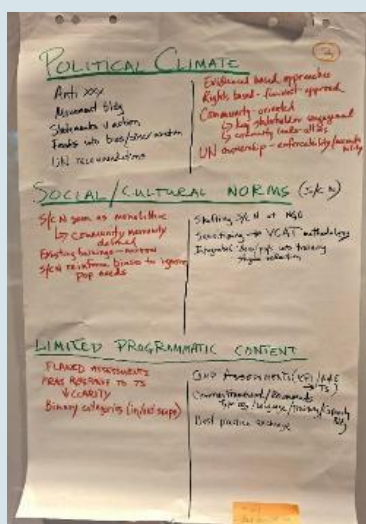 POLITICAL CLIMATE
Anti xxx
Movement bldg
Statements v action
Feeds into bias/discrimination
UN recommendations
Evidenced based approaches
Rights based - feminist approach
Community-oriented
↳ key stakeholder engagement
↳ community leaders/allies
UN ownership - enforceability/accountability
SOCIAL/CULTURAL NORMS (S/CN)
S/CN seen as monolithic
↳ community narrowly defined
Existing trainings - narrow
S/CN reinforce biases to ignore
pop needs
Shifting S/CN at NGO
Sensitizing → VCAT methodology
Integrated into training
stigma reduction
LIMITED PROGRAMMATIC CONTENT
FLAWED ASSESSMENTS
RESPONSE TO TS
↓ CLARITY
Binary categories
ASSESSMENTS
Common framework
language/training/capacity
Best practice exchange